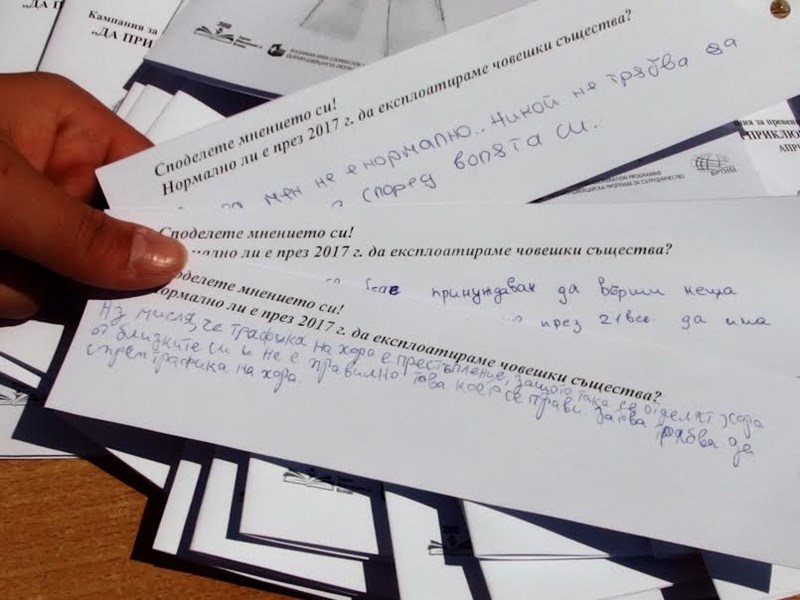 Кампания за
„ДА ПРИ
Споделете мнението си!
Нормално ли е през 2017 г. да експлоатираме човешки същества?
мен не е нормално.. Никой не трябва да
според волята си.
ПРИКЛЮ
АПРИ
Споделете мнението си!
ли е през 2017 г. да експлоатираме човешки същества?
принуждаван да върши неща
през 21 век. да има
Споделете мнението си!
Нормално ли е през 2017 г. да експлоатираме човешки същества?
Аз мисля, че трафика на хора е престъпление, защото така се отделят хора
от близките си и не е правилно това което се прави. Затова трябва да
спрем трафика на хора.